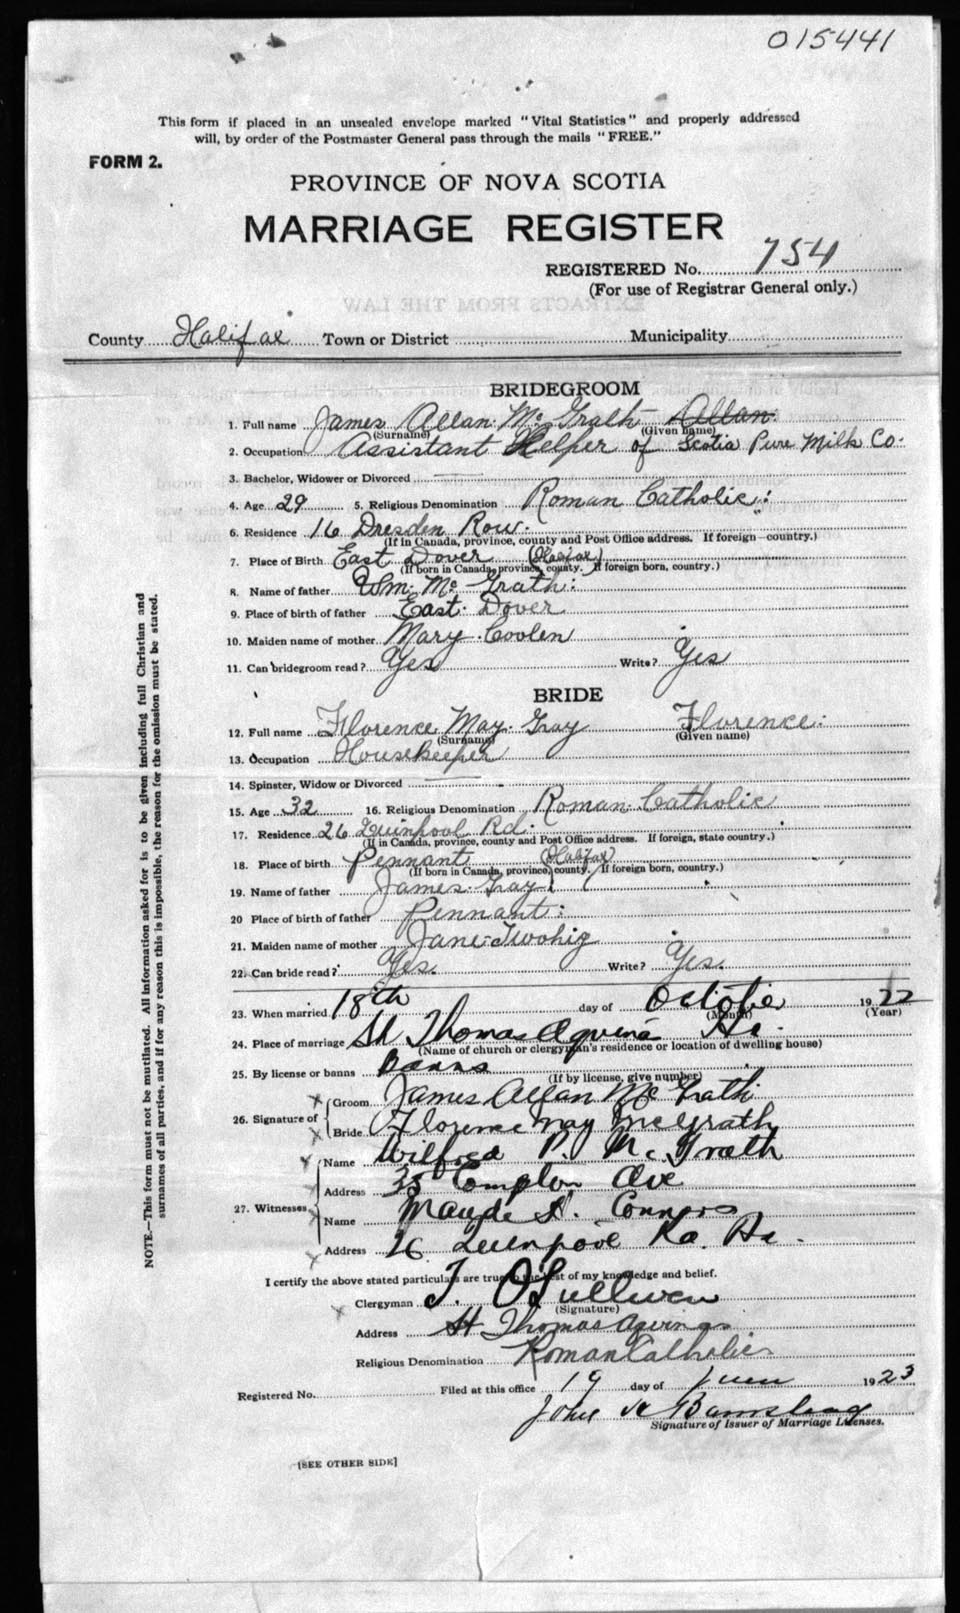 015441
This form if placed in an unsealed envelope marked "Vital Statistics" and properly addressed
will, by order of the Postmaster General pass through the mails "FREE."
FORM 2.
PROVINCE OF NOVA SCOTIA
MARRIAGE REGISTER
REGISTERED No. 754
(For use of Registrar General only.)
EXTRACTS FROM THE LAW
County Halifax Town or District Municipality
BRIDEGROOM
1. Full name James Allan Mc Grath Allan
(Surname) (Given name)
2. Occupation Assistant Helper of Scotia Pure Milk Co.
3. Bachelor, Widower or Divorced
4. Age 29 5. Religious Denomination Roman Catholic:
6. Residence 16 Dresden Row.
(If in Canada, province, county and Post Office address. If foreign—country.)
7. Place of Birth East Dover (Halifax)
(If born in Canada, province, county. If foreign born, country.)
8. Name of father Wm. Mc Grath:
9. Place of birth of father East Dover
10. Maiden name of mother Mary Coolen
11. Can bridegroom read? Yes Write? Yes
BRIDE
12. Full name Florence May Gray Florence:
(Surname) (Given name)
13. Occupation Housekeeper
14. Spinster, Widow or Divorced
15. Age 32 16. Religious Denomination Roman Catholic
17. Residence 26 Quinpool Rd.
(If in Canada, province, county and Post Office address. If foreign, state country.)
18. Place of birth Pennant (Halifax)
(If born in Canada, province, county. If foreign born, country.)
19. Name of father James Gray
20 Place of birth of father Pennant:
21. Maiden name of mother Jane Twohig
22. Can bride read? Yes. Write? Yes.
23. When married 18th day of October 1922
(Month) (Year)
24. Place of marriage St Thomas Aquinas Hx.
(Name of church or clergyman's residence or location of dwelling house)
25. By license or banns Banns
(If by license, give number)
26. Signature of Groom James Allan Mc Grath
Bride Florence May McGrath
27. Witnesses Name Wilfred P. Mc Grath
Address 35 Compton Ave
Name Maude Connors
Address 26 Quinpool Rd. Hx.
I certify the above stated particulars are true to the best of my knowledge and belief.
Clergyman T. O'Sullivan
(Signature)
Address St Thomas Aquinas
Religious Denomination Roman Catholic
Registered No. Filed at this office 19 day of 1923
John
Signature of Issuer of Marriage Licenses.
[SEE OTHER SIDE]
NOTE.—This form must not be mutilated. All information asked for is to be given including full Christian and
surnames of all parties, and if for any reason this is impossible, the reason for the omission must be stated.